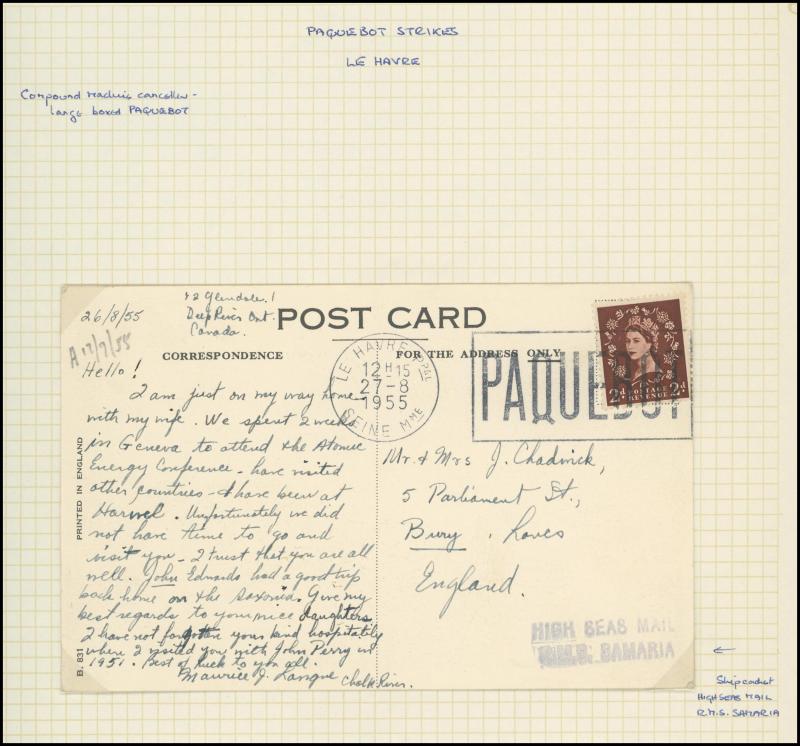 PAQUEBOT STRIKES
LE HAVRE
Compound machine canceller -
large boxed PAQUEBOT
26/8/55
42 Glendale.
Deep River Ont.
Canada.
POST CARD
A 17/9/55
CORRESPONDENCE
FOR THE ADDRESS ONLY
Hello!
I am just on my way home
with my wife. We spent 2 weeks
in Geneva to attend the Atomic
Energy Conference - have visited
other countries - & have been at
Harwel. Unfortunately we did
not have time to go and
visit you - I trust that you are all
well. John Edwards had a good trip
back home on the Saxonia. Give my
best regards to your nice daughters
I have not forgotten your kind hospitately
when I visited you with John Perry in
1951. Best of luck to you all.
Maurice J.
Chalk River.
LE HAVRE PPAL
12H15
27-8
1955
SEINE MME
PAQUEBOT
2D POSTAGE REVENUE 2D
Mr. & Mrs J. Chadwick,
5 Parliament St.,
Bury, Lancs
England.
HIGH SEAS MAIL
R.M.S. SAMARIA
PRINTED IN ENGLAND
B. 831
←
Ship cachet
HIGH SEAS MAIL
R.M.S. SAMARIA